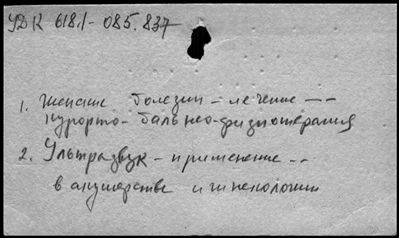 УДК 618.1-085.837
1. Женские болезни - лечение --
курорто-бальнео-физиотерапия
2. Ультразвук - применение --
в акушерстве и гинекологии